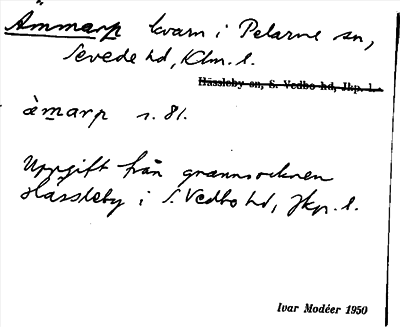 Ämmarp kvarn i Pelarne sn,
Sevede hd, Klm. l.
Hässleby sn, S. Vedbo hd, Jkp. l.
àmarp s. 81.
Uppgift från grannsocknen
Hässleby i S. Vedbo hd, Jkp. l.
Ivar Modéer 1950